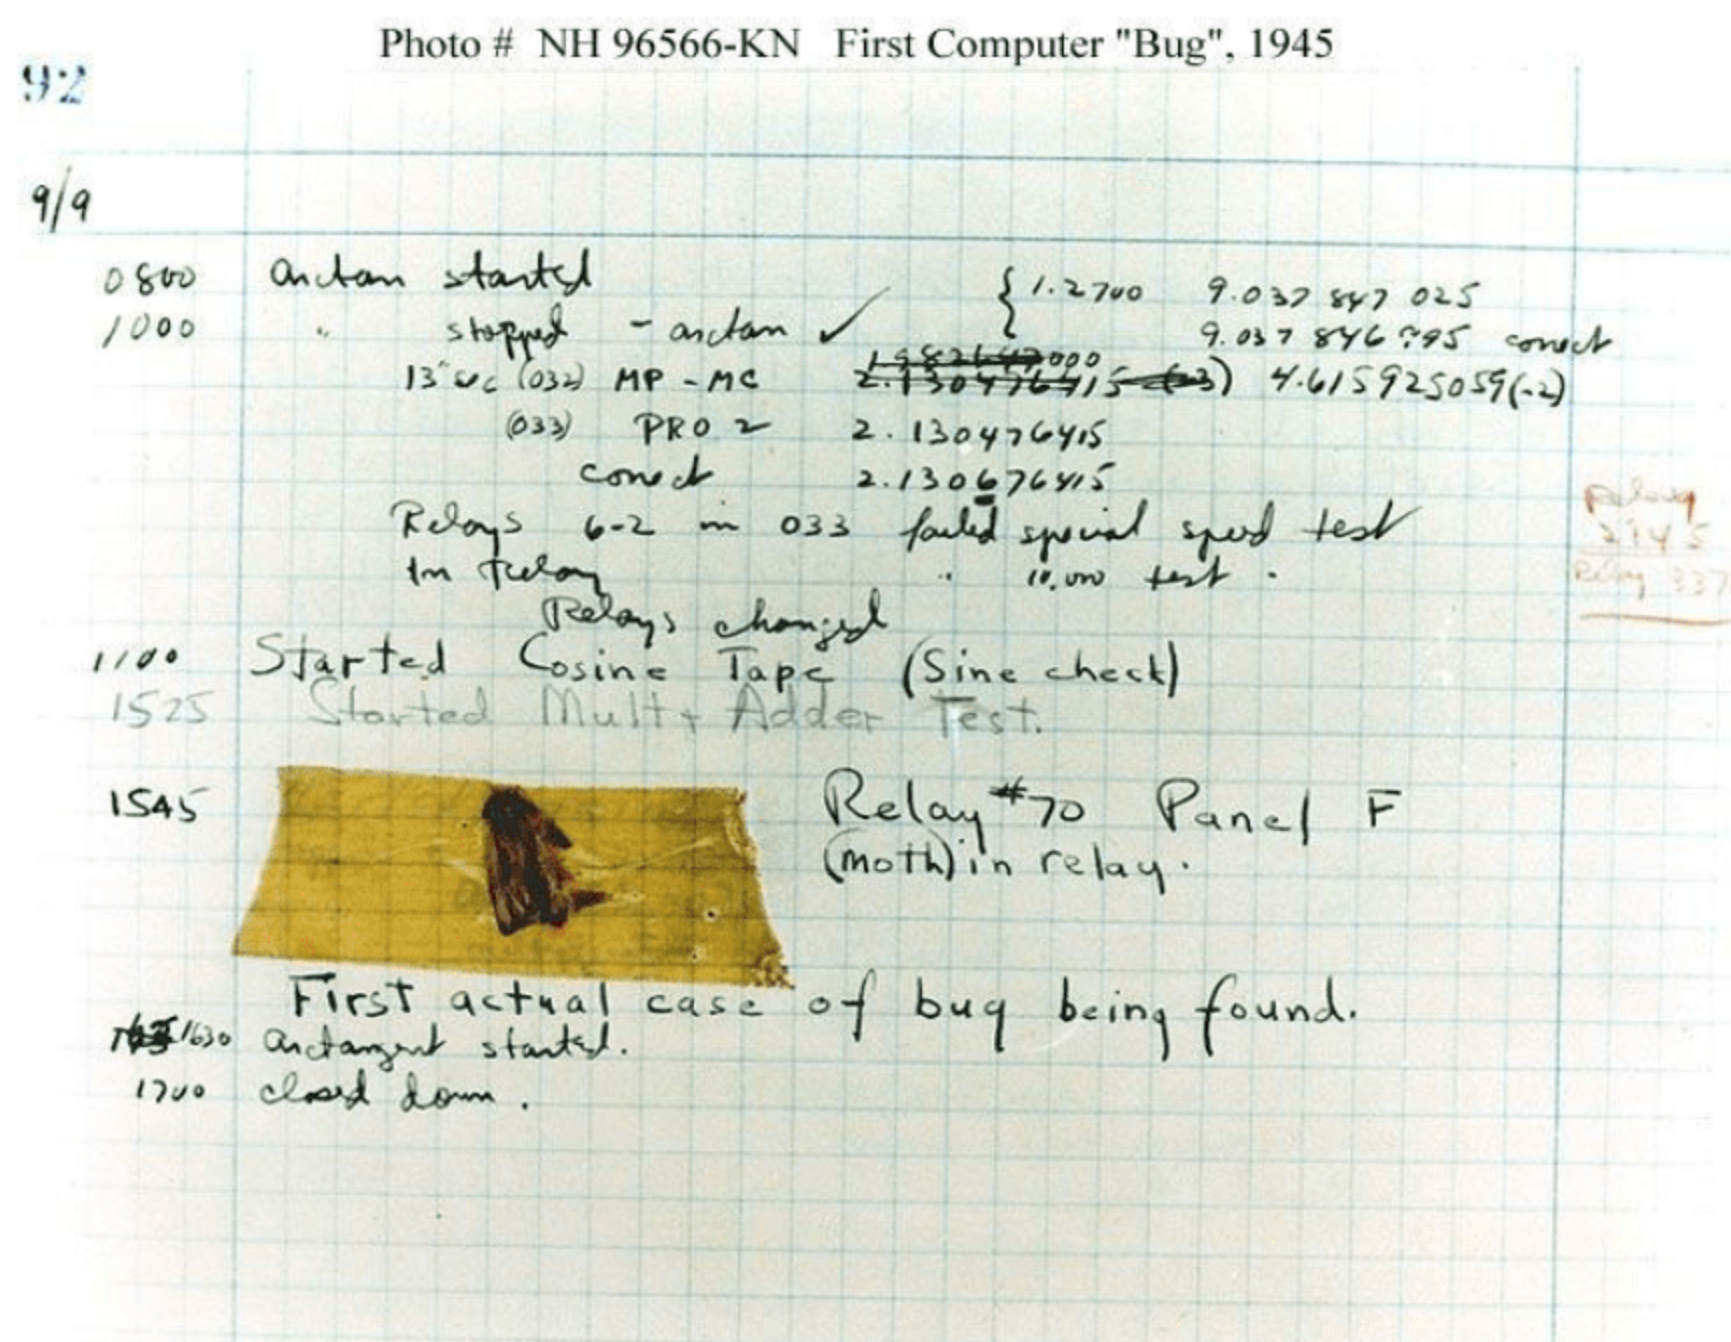 Photo # NH 96566-KN First Computer "Bug", 1945
92
9/9
0800 arctan started { 1.2700 9.037 847 025
1000 " stopped - arctan ✓ 9.037 846 795 correct
000
13" (032) MP - MC 2.130476415 (-3) 4.615925059(-2)
(033) PRO 2 2.130476415
correct 2.130676415
Relays 6-2 in 033 failed special speed test
In relay " 10,000 test .
Relays changed
Relay
2145
Relay 337
1100 Started Cosine Tape (Sine check)
1525 Started Mult + Adder Test.
1545 Relay #70 Panel F
(moth) in relay.
First actual case of bug being found.
1630 arctangent started.
1700 closed down .